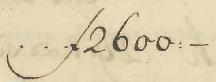 . . . ƒ2600:–